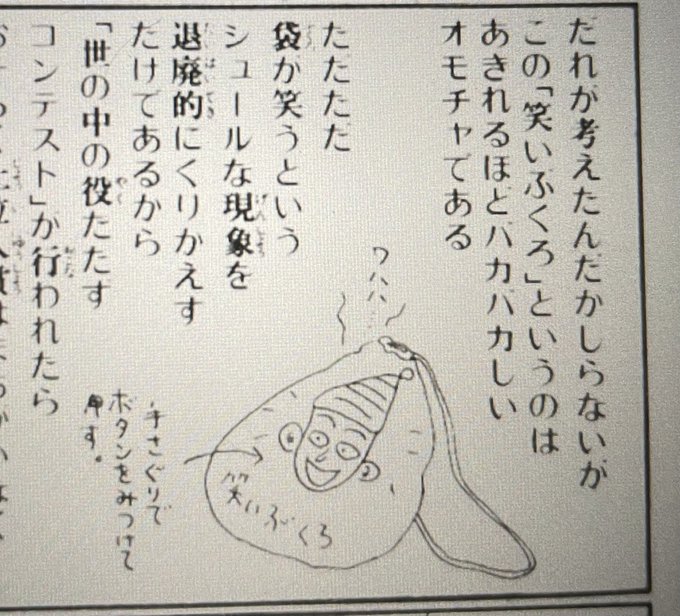 だれが考えたんだかしらないが
この「笑いふくろ」というのは
あきれるほどバカバカしい
オモチャである
たたたた
袋が笑うという
シュールな現象を
退廃的にくりかえす
だけであるから
「世の中の役たたす
コンテスト」が行われたら
ワハハ…
笑いぶくろ
手さぐりで
ボタンをみつけて
押す。